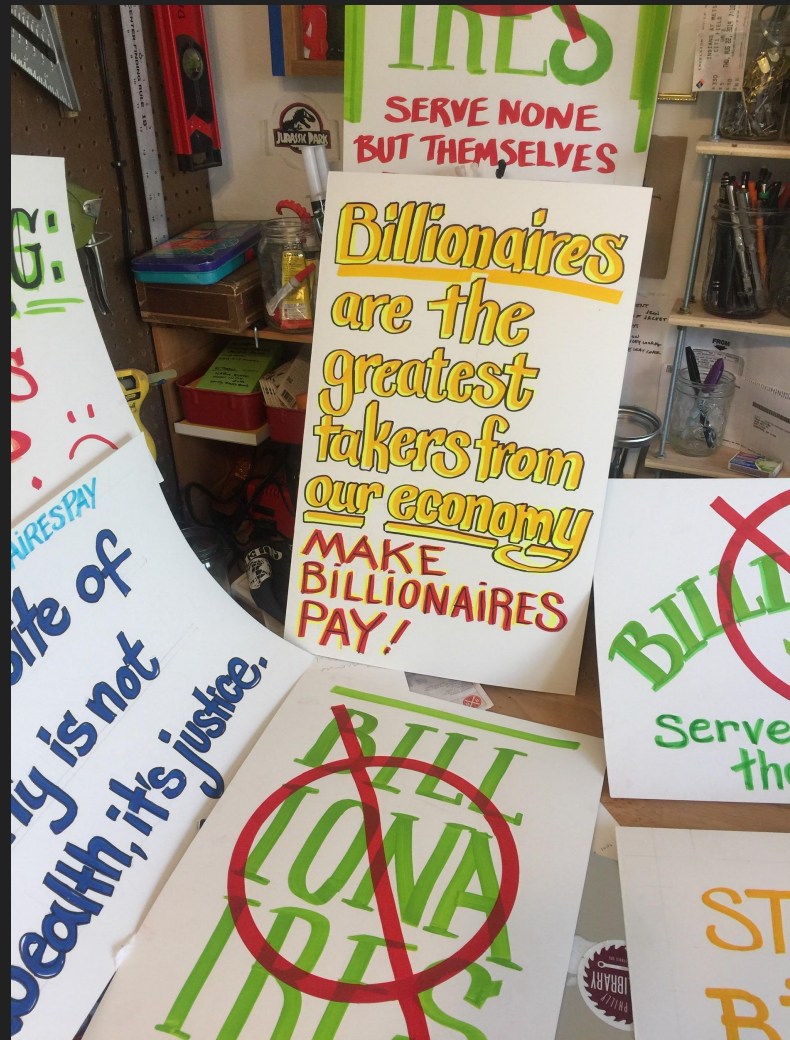 IRES
SERVE NONE
BUT THEMSELVES
JURASSIC PARK
Billionaires
are the
greatest
takers from
our economy
MAKE
BILLIONAIRES
PAY!
G:
S
AIRES PAY
site of
ly is not
wealth, it's justice.
BILL
IONA
IRES
BILLI
Serve
the
ST
Bi
FROM
PHILLY
LIBRARY